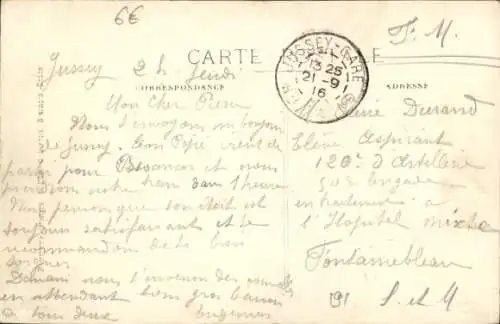 6€
F. M.
CARTE
CORRESPONDANCE
ADRESSE
JUSSEY-GARE
13 25
21-9
16
Jussey 2 h Jeudi
Mon cher Pierre
Nous t'envoyons un bonjour
de Jussey. Ton Père vient de
passer pour Besancon et nous
prendrons notre train dans 1 heure
Nous pensons que ton état est
toujours satisfaisant et te
recommandons de te bien
soigner
Demain nous t'enverrons des
en attendant bons gros baisers
à tous deux
Pierre Durand
Elève Aspirant
120e d'Artillerie
50e brigade
en traitement à
l'Hopital mixte
Fontainebleau
191 S. et M